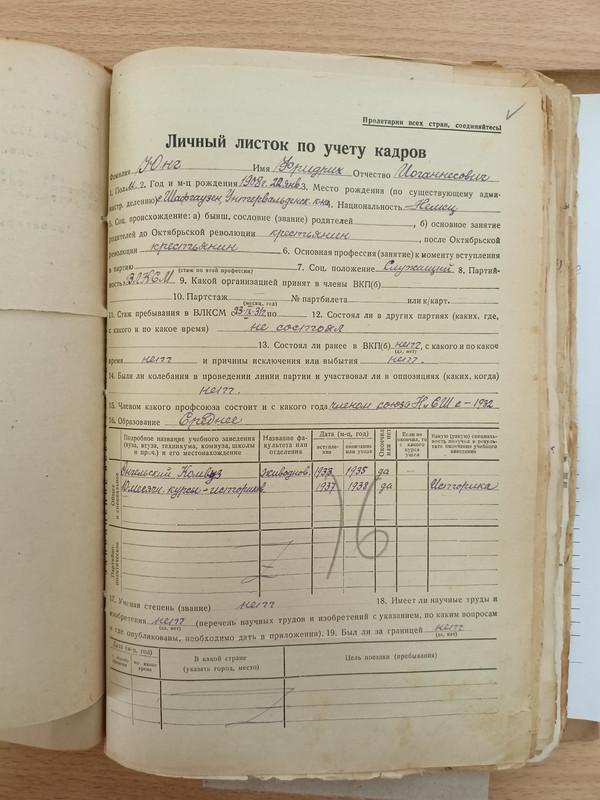 Пролетарии всех стран, соединяйтесь!
Личный листок по учету кадров
Фамилия Юнг Имя Фридрих Отчество Иоганнесович
1. Пол м. 2. Год и м-ц рождения 1908г. 22 янв. 3. Место рождения (по существующему адми-
нистр. делению) с. Шафгаузен, Унтервальденск. к-на 4. Национальность Немец
5. Соц. происхождение: а) бывш. сословие (звание) родителей , б) основное занятие
родителей до Октябрьской революции крестьянин , после Октябрьской
революции крестьянин 6. Основная профессия (занятие) к моменту вступления
в партию 7. Соц. положение Служащий 8. Партий-
(стаж по этой профессии)
ность ВЛКСМ 9. Какой организацией принят в члены ВКП(б)
10. Партстаж № партбилета или к/карт.
(месяц, год)
11. Стаж пребывания в ВЛКСМ с 23-IX-31г. по 12. Состоял ли в других партиях (каких, где,
с какого и по какое время) не состоял
13. Состоял ли ранее в ВКП(б) нет, с какого и по какое
(да, нет)
время нет и причины исключения или выбытия нет.
14. Были ли колебания в проведении линии партии и участвовал ли в оппозициях (каких, когда)
нет.
15. Членом какого профсоюза состоит и с какого года членом союза НСШ с - 1932
16. Образование Среднее
Подробное название учебного заведения (вуза, втуза, техникума, комвуза, школы и пр.) и его местонахождение
Название факультета или отделения
Дата (м-ц, год)
вступления
окончания или ухода
Окончил или нет
Если не окончил, то с какого курса ушел
Какую (узкую) специальность получил в результате окончания учебного заведения
Общее и специальное
Энгельский Комвуз животнов. 1933 1935 да —
10 месячн. курсы - историков. 1937 1938 да Историка
16
Партийно-политическое
17. Ученая степень (звание) нет 18. Имеет ли научные труды и
изобретения нет (перечень научных трудов и изобретений с указанием, по каким вопросам
(да, нет)
и где опубликованы, необходимо дать в приложении). 19. Был ли за границей нет
(да, нет)
Дата (м-ц, год)
с какого времени
по какое время
В какой стране
(указать город, место)
Цель поездки (пребывания)